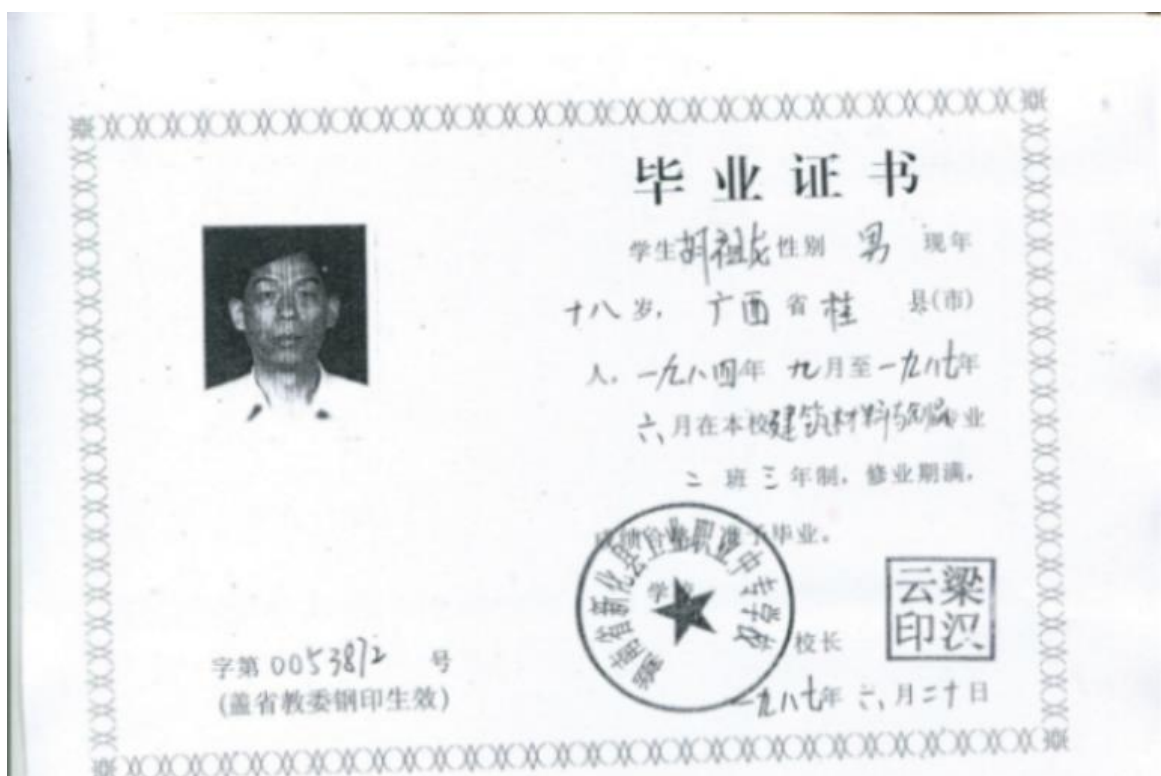 毕业证书
学生胡祖龙性别 男 现年
十八岁，广西省桂 县(市)
人，一九八四年 九月至一九八七年
六月在本校建筑材料 专业
二 班三年制，修业期满，
成绩合格准予毕业。
湖南省新化县工业职业中专学校
学
校长
梁汉云印
一九八七年 六月二十日
字第 0053872 号
(盖省教委钢印生效)